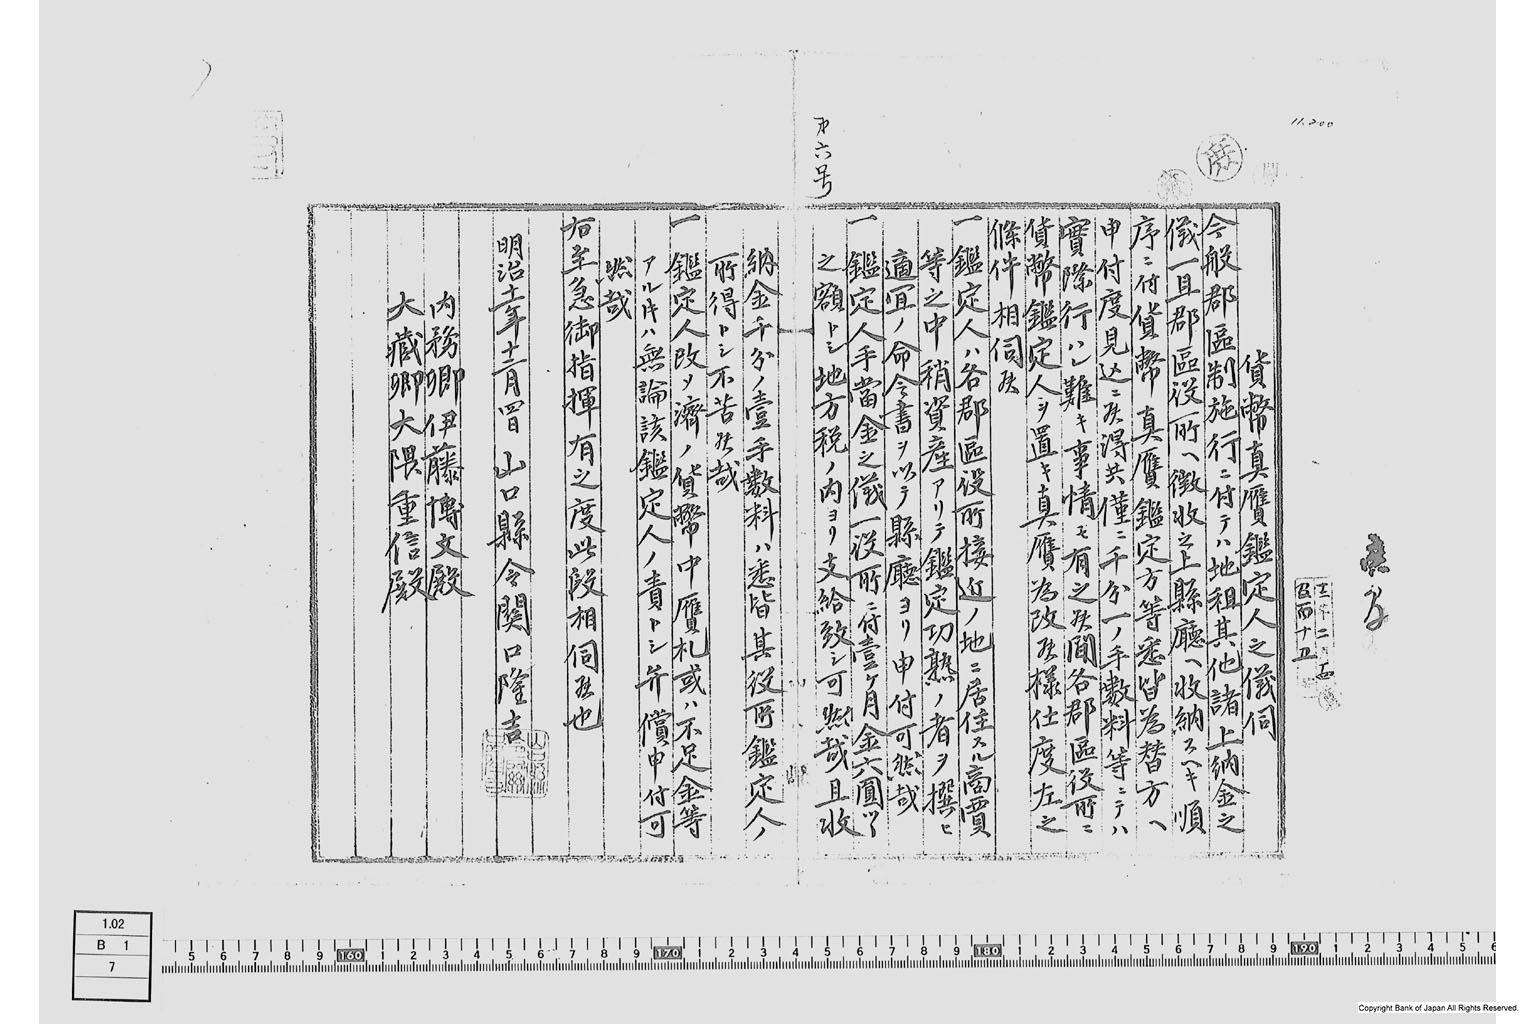 11.200
第六号
貨幣真贋鑑定人之儀伺
今般郡區制施行ニ付テハ地租其他諸上納金之
儀一旦郡區役所ヘ徴收之上縣廳ヘ收納スヘキ順
序ニ付貨幣真贋鑑定方等悉皆為替方ヘ
申付度見込ニ候得共僅ニ千分一ノ手數料等ニテハ
實際行ハレ難キ事情モ有之候間各郡區役所ニ
貨幣鑑定人ヲ置キ真贋為改候様仕度左之
條件相伺候
一鑑定人ハ各郡區役所接近ノ地ニ居住スル商賈
等之中稍資産アリテ鑑定功熟ノ者ヲ撰ヒ
適宜ノ命令書ヲ以テ縣廳ヨリ申付可然哉
一鑑定人手當金之儀一役所ニ付壹ヶ月金六圓ツヽ
之額トシ地方税ノ内ヨリ支給致シ可然哉且收
納金千分ノ壹手數料ハ悉皆其役所鑑定人ノ
所得トシ不苦候哉
一鑑定人改ヲ濟ノ貨幣中贋札或ハ不足金等
アル時ハ無論該鑑定人ノ責トシ弁償申付可
然哉
右至急御指揮有之度此段相伺候也
明治十一年十二月四日 山口縣令関口隆吉
内務卿伊藤博文殿
大藏卿大隈重信殿
1.02
B 1
7
5 6 7 8 9 160 1 2 3 4 5 6 7 8 9 170 1 2 3 4 5 6 7 8 9 180 1 2 3 4 5 6 7 8 9 190 1 2 3 4 5 6
Copyright Bank of Japan All Rights Reserved.